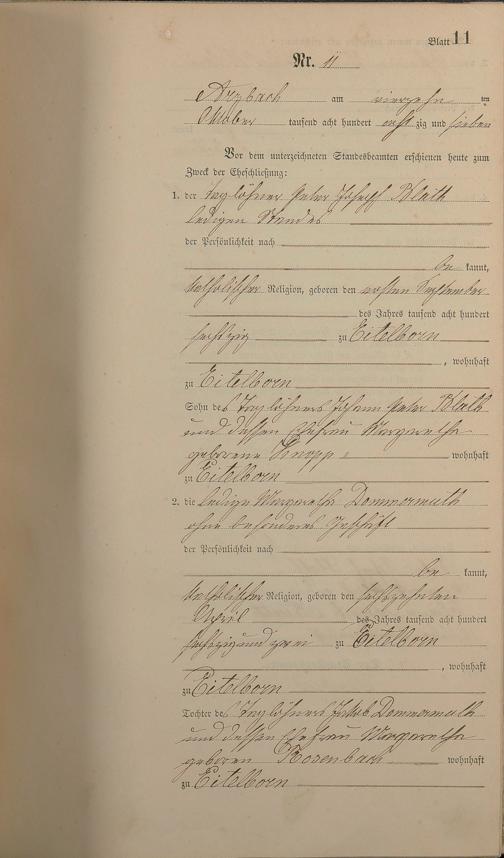 Blatt 11
Nr. 11
Arzbach am vierzehn ten
Oktober tausend acht hundert acht zig und sieben
Vor dem unterzeichneten Standesbeamten erschienen heute zum
Zweck der Eheschließung:
1. der Taglöhner Peter Joseph Blath
ledigen Standes
der Persönlichkeit nach
be kannt,
katholischer Religion, geboren den ersten September
des Jahres tausend acht hundert
sechszig zu Eitelborn
, wohnhaft
zu Eitelborn
Sohn des Taglöhners Johann Peter Blath
und dessen Ehefrau Margaretha
geborene Knopp wohnhaft
zu Eitelborn
2. die ledige Margaretha Dommermuth
ohne besonderes Geschäft
der Persönlichkeit nach
be kannt,
katholischer Religion, geboren den sechszehnten
April des Jahres tausend acht hundert
sechszig und zwei zu Eitelborn
, wohnhaft
zu Eitelborn
Tochter des Taglöhners Jakob Dommermuth
und dessen Ehefrau Margaretha
geboren Rosenbach wohnhaft
zu Eitelborn